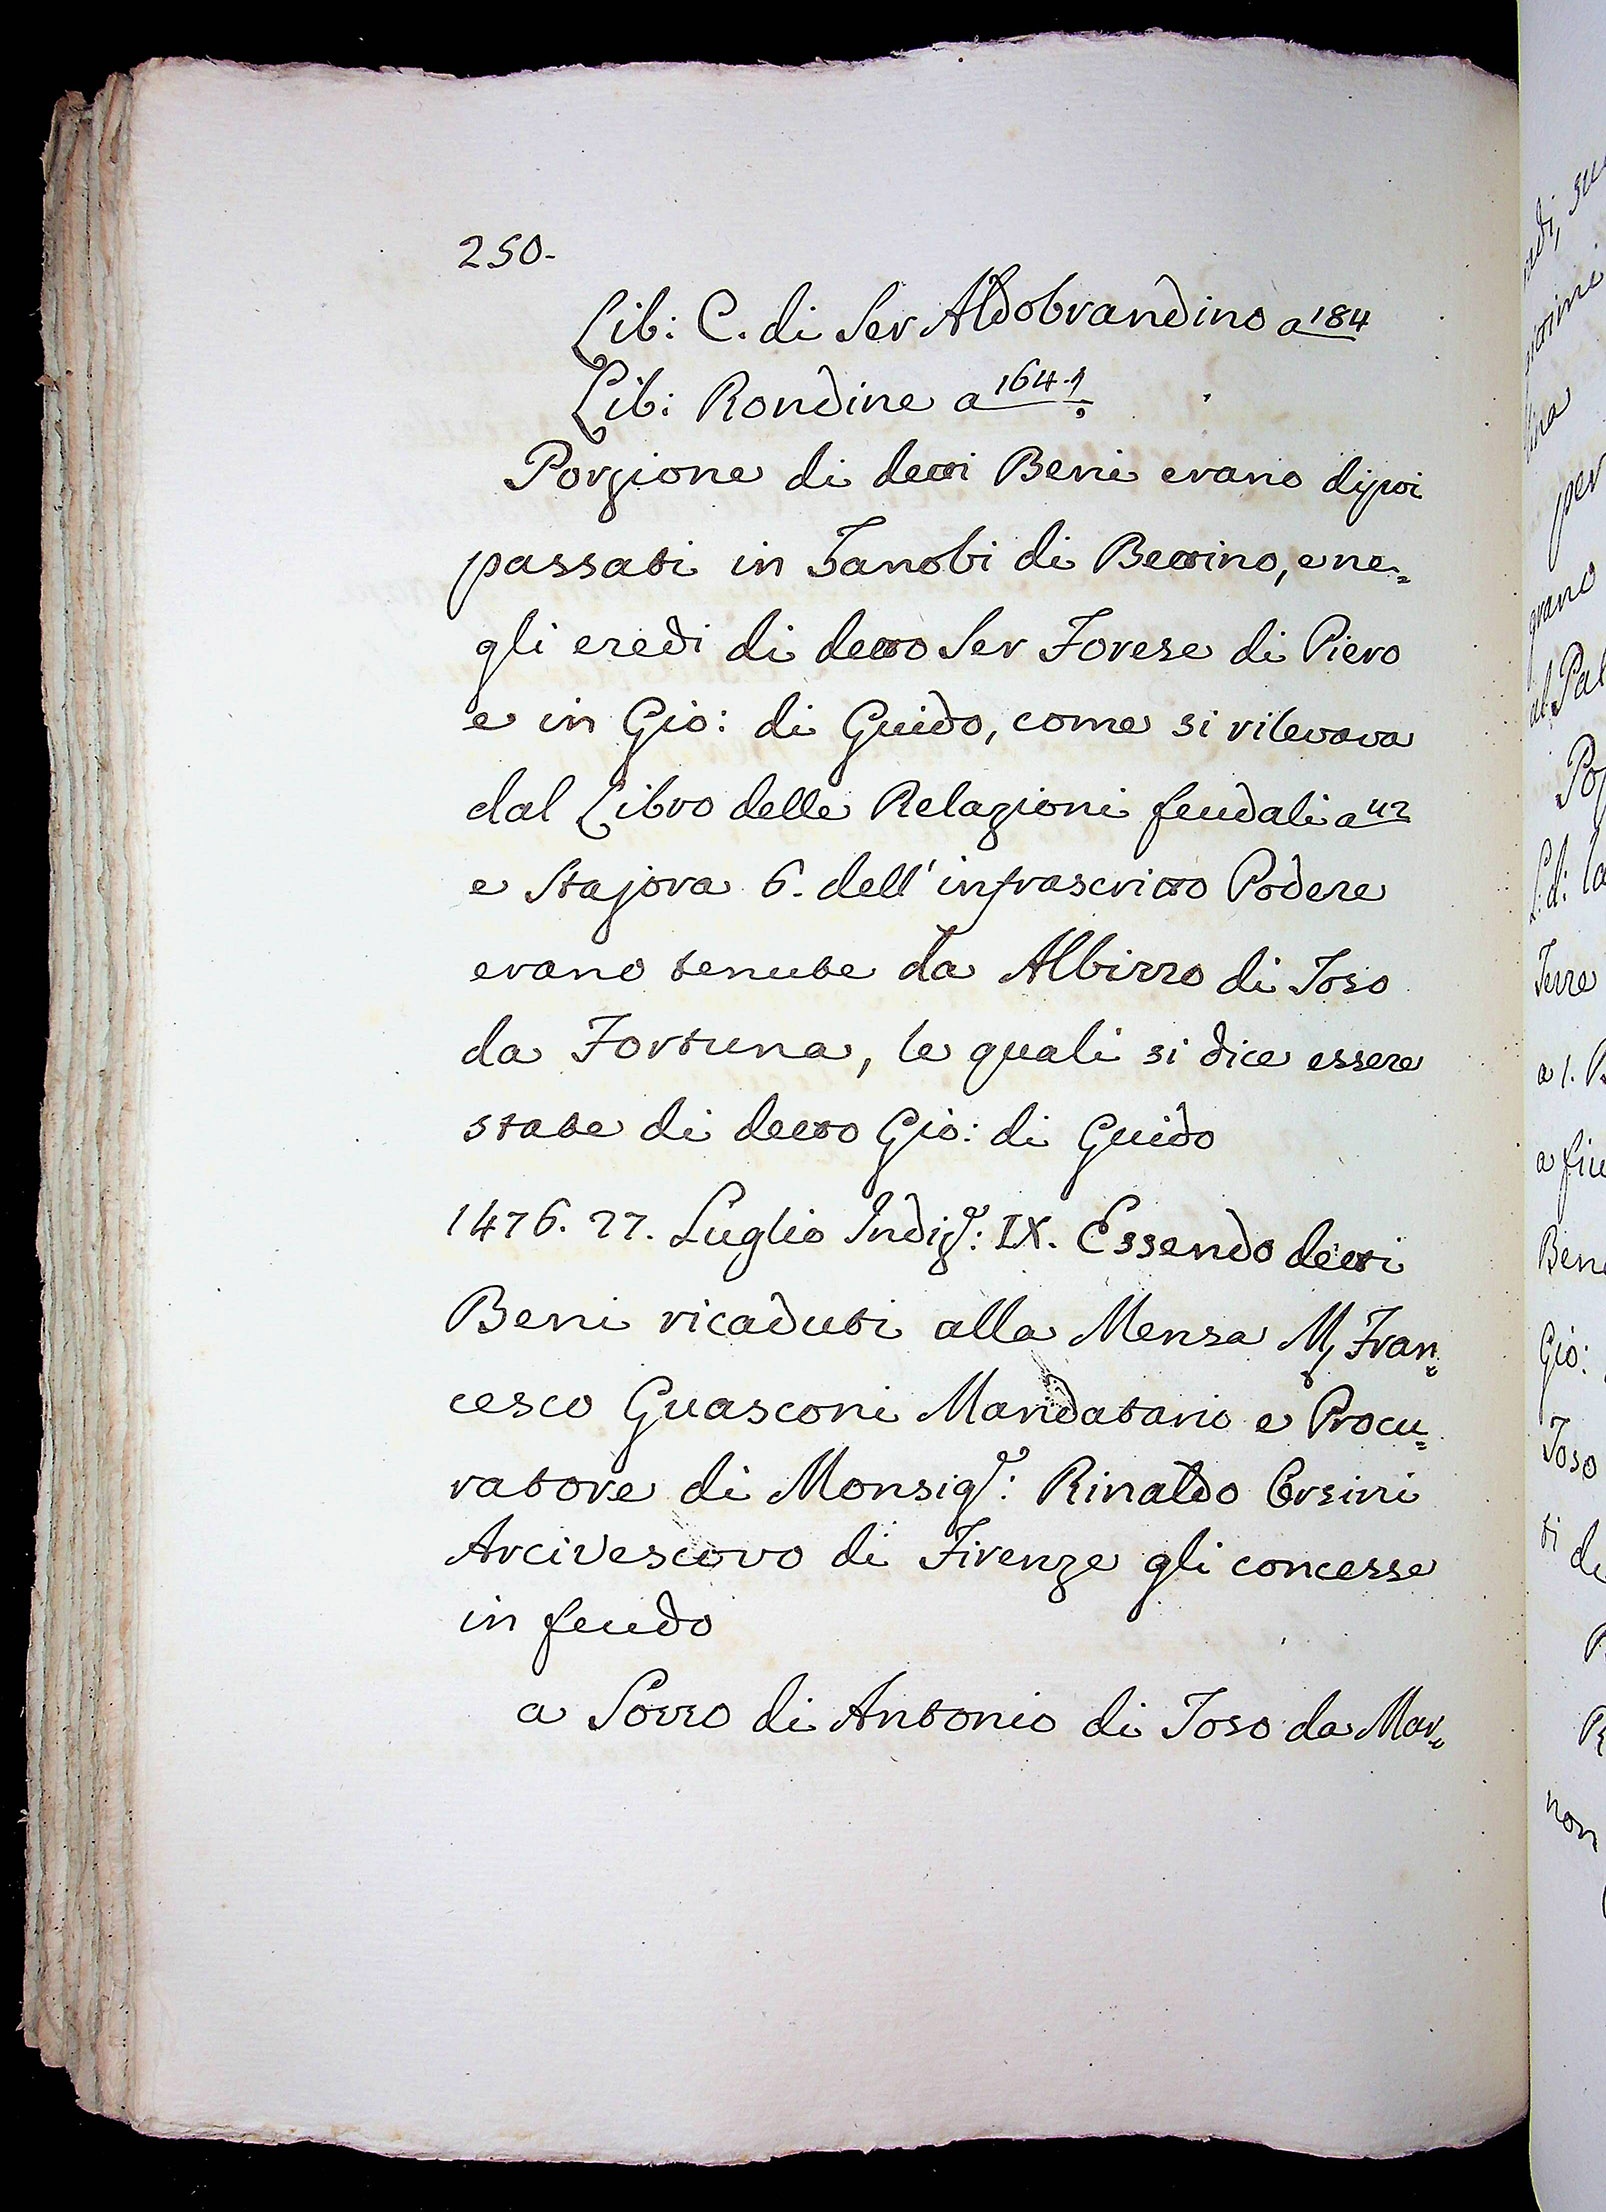 250.
Lib: C. di Ser Aldobrandino a 184
Lib: Rondine a 164.
Porzione di detti Beni erano dipoi
passati in Zanobi di Bettino, e ne=
gli eredi di detto Ser Forese di Piero
e in Gio: di Guido, come si rilevava
dal Libro delle Relazioni feudali a 42
e Stajora 6. dell'infrascritto Podere
erano tenute da Albizzo di Toso
da Fortuna, le quali si dice essere
state di detto Gio: di Guido
1476. 27. Luglio Indiz.e: IX. Essendo detti
Beni ricaduti alla Mensa M, Fran=
cesco Guasconi Mandatario e Procu=
ratore di Monsig.e: Rinaldo Orsini
Arcivescovo di Firenze gli concesse
in feudo
a Pozzo di Antonio di Toso da Mar=
per
grano
al Pal
L: d: la
Terre
a fiu
Bene
Gio:
Toso
ti de
non